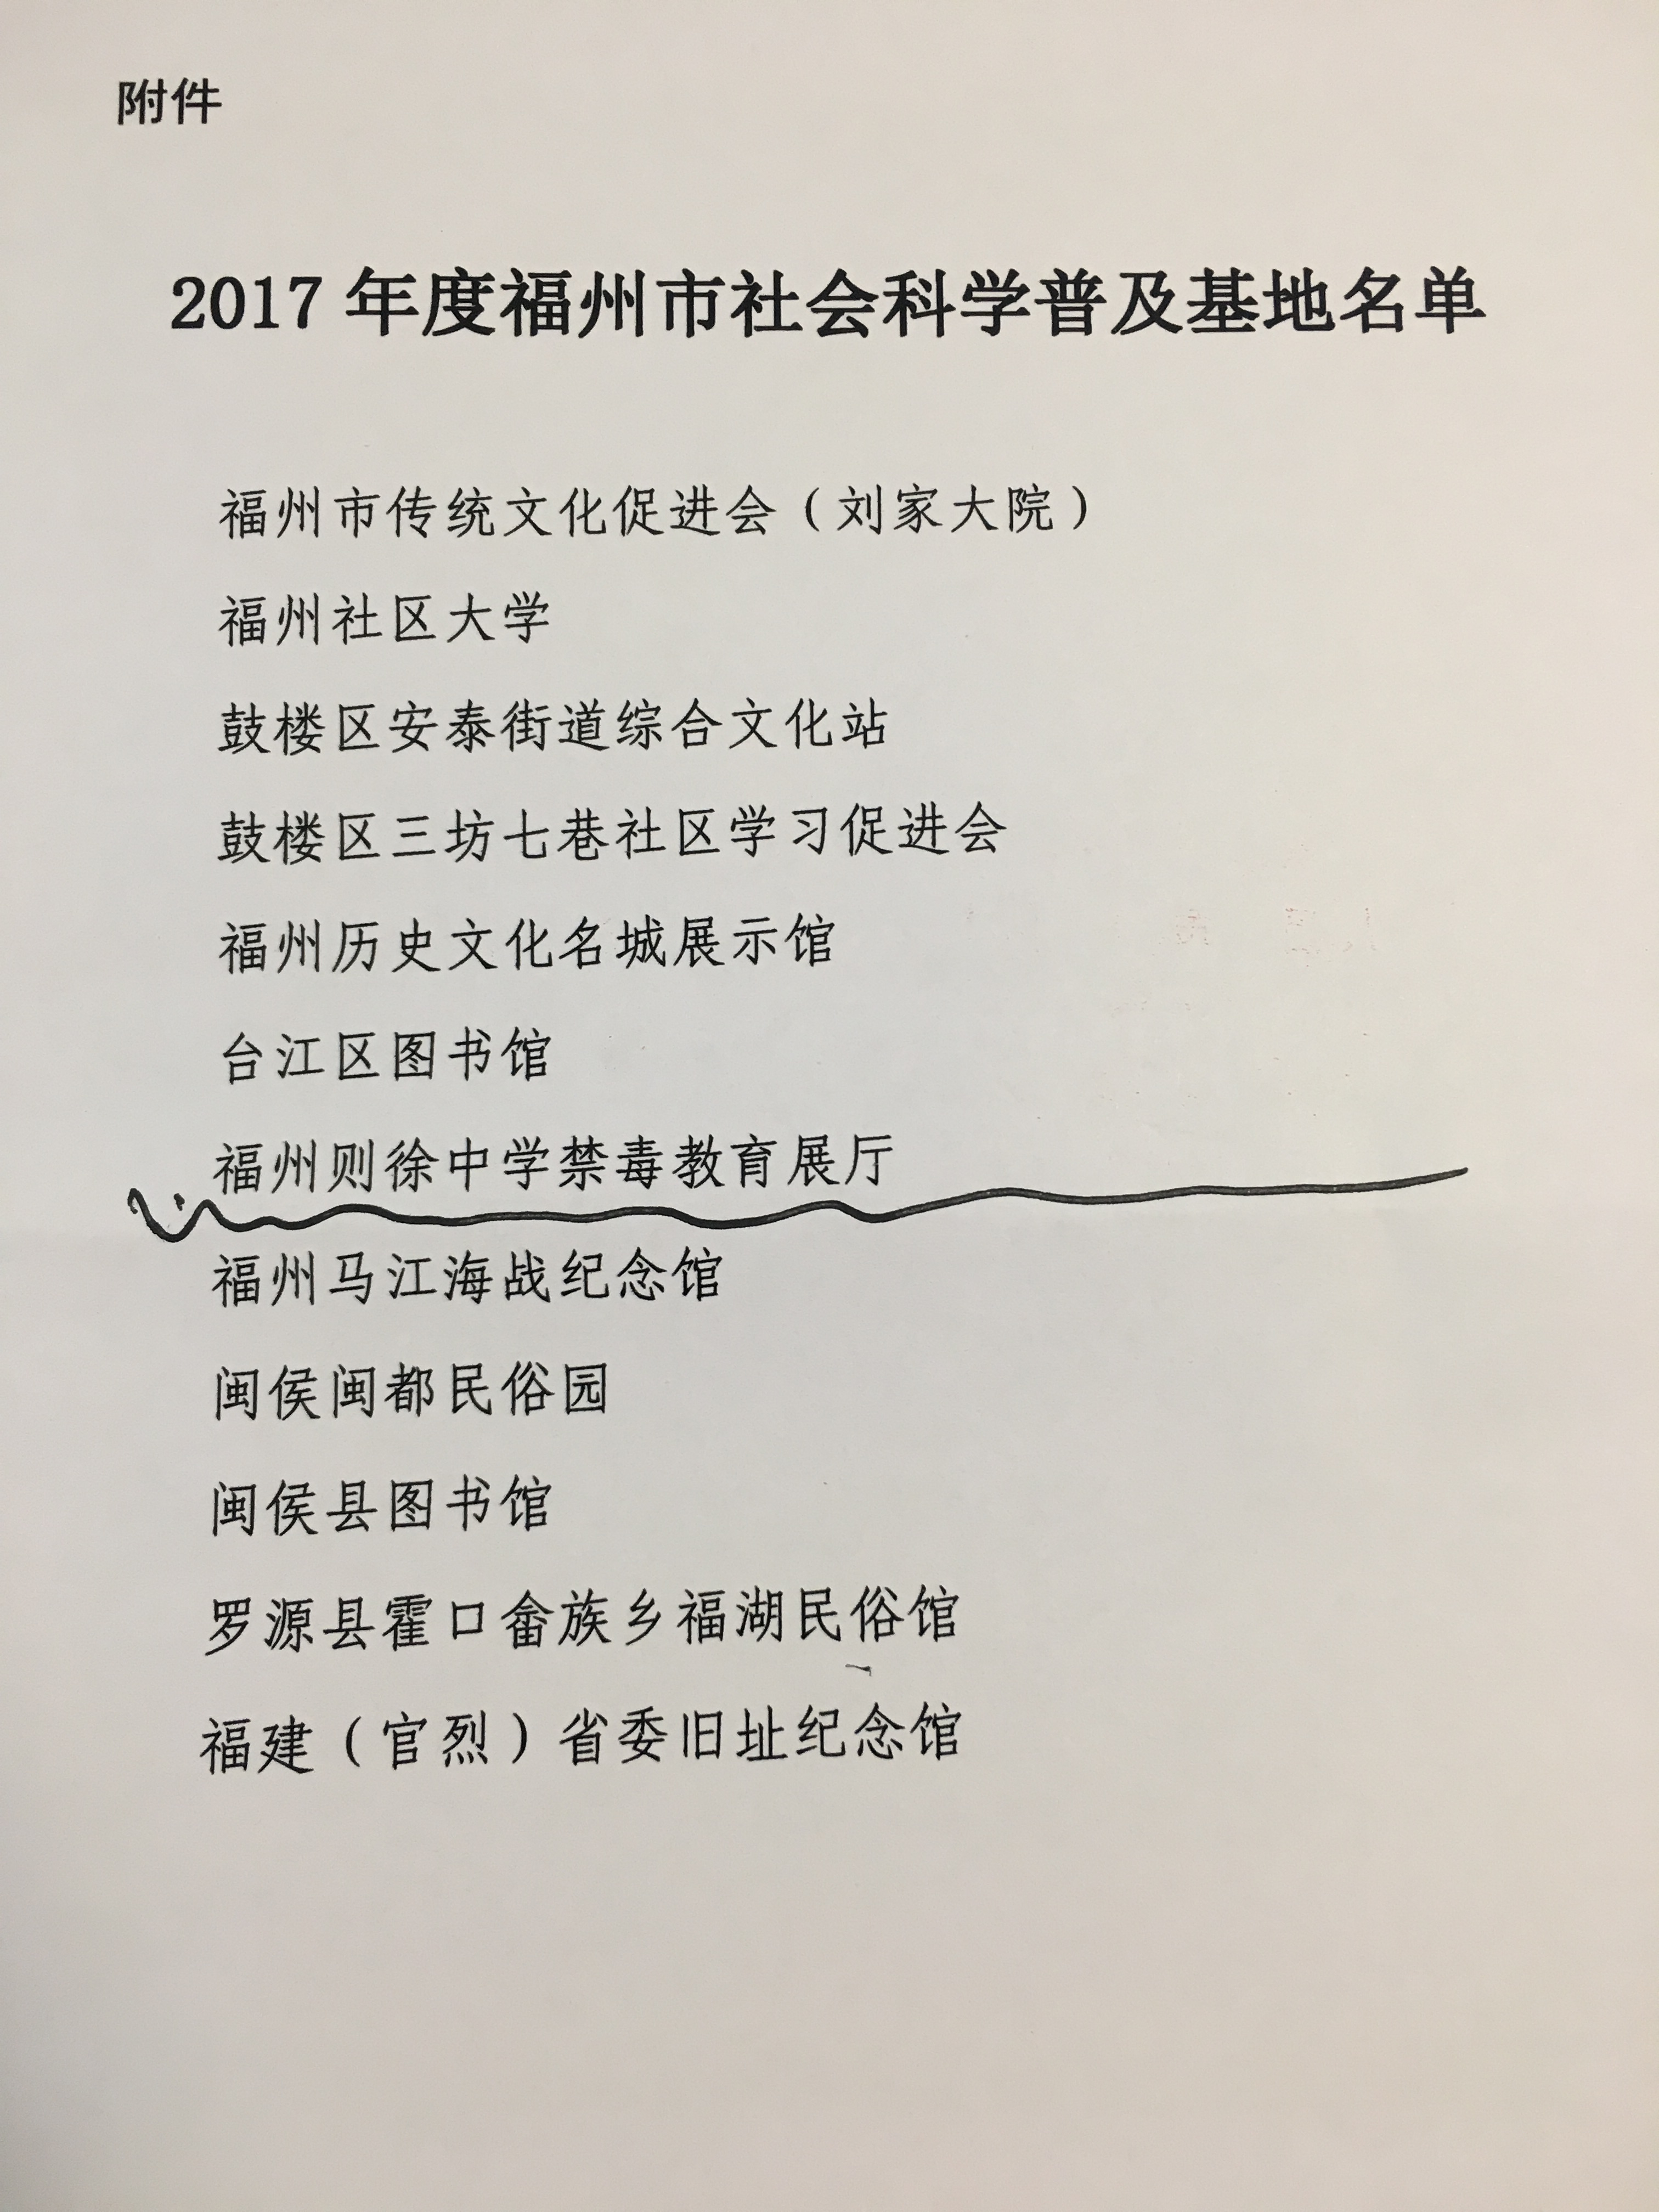 附件
2017年度福州市社会科学普及基地名单
福州市传统文化促进会（刘家大院）
福州社区大学
鼓楼区安泰街道综合文化站
鼓楼区三坊七巷社区学习促进会
福州历史文化名城展示馆
台江区图书馆
福州则徐中学禁毒教育展厅
福州马江海战纪念馆
闽侯闽都民俗园
闽侯县图书馆
罗源县霍口畲族乡福湖民俗馆
福建（官烈）省委旧址纪念馆